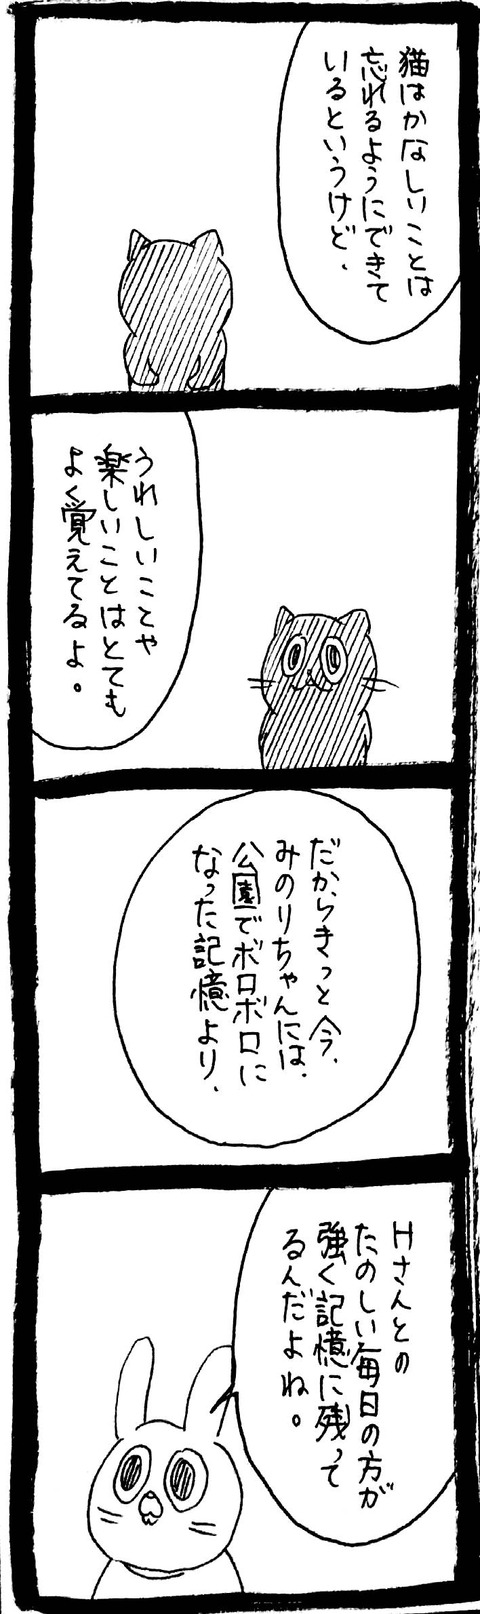 猫はかなしいことは
忘れるようにできて
いるというけど、
うれしいことや
楽しいことはとても
よく覚えてるよ。
だからきっと今、
みのりちゃんには、
公園でボロボロに
なった記憶より、
Hさんとの
たのしい毎日の方が
強く記憶に残って
るんだよね。